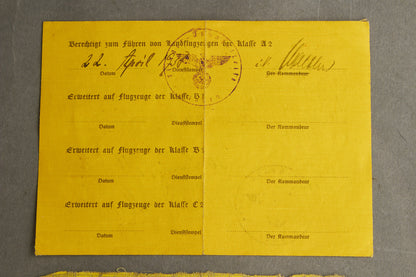 Berechtigt zum Führen von Landflugzeugen der Klasse A 2
22. April
Datum Dienststempel Der Kommandeur
Erweitert auf Flugzeuge der Klasse B
Datum Dienststempel Der Kommandeur
Erweitert auf Flugzeuge der Klasse B 2
Datum Dienststempel Der Kommandeur
Erweitert auf Flugzeuge der Klasse C 2
Datum Dienststempel Der Kommandeur